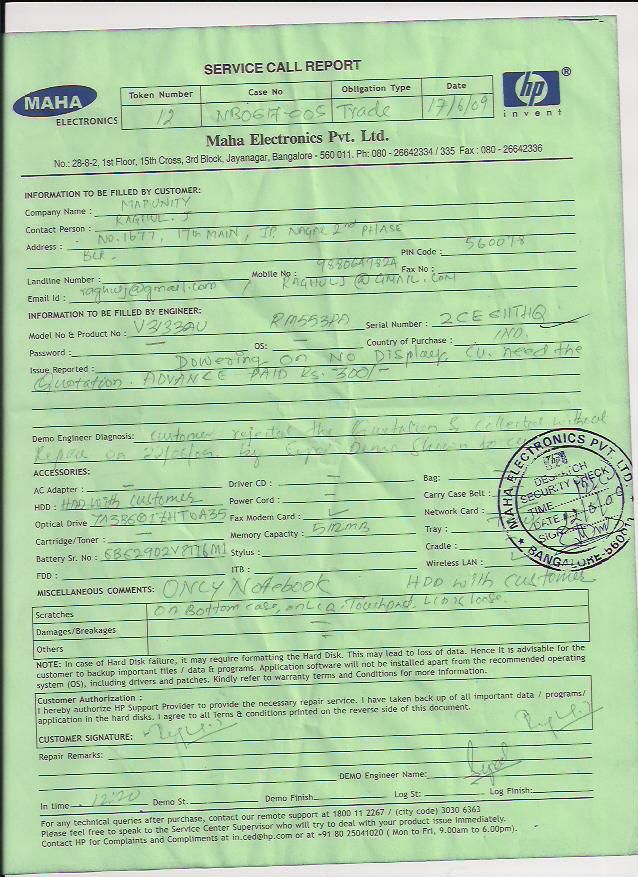 SERVICE CALL REPORT
MAHA
ELECTRONICS
Token Number Case No Obligation Type Date
12 NB0617-005 Trade 17/6/09
hp ®
invent
Maha Electronics Pvt. Ltd.
No.: 28-8-2, 1st Floor, 15th Cross, 3rd Block, Jayanagar, Bangalore - 560 011. Ph: 080 - 26642334 / 335 Fax : 080 - 26642336
INFORMATION TO BE FILLED BY CUSTOMER:
Company Name : MAPUNITY
Contact Person : RAGHUL. J
Address : No. 1677, 17th MAIN, J.P. NAGAR 2nd PHASE
BLR. PIN Code : 560078
Landline Number : Mobile No : Fax No :
Email Id : raghulj@gmail.com / RAGHULJ @ GMAIL.COM
INFORMATION TO BE FILLED BY ENGINEER:
Model No & Product No : V3133AU RM553PA Serial Number : 2CE611THQ
Password : — OS: — Country of Purchase : IND.
Issue Reported : Powering on No Display, Cu. need the
Quotation. ADVANCE PAID Rs. 300/-
Demo Engineer Diagnosis: Customer rejected the Quotation & collected without
Repair on by
ACCESSORIES:
AC Adapter : — Driver CD : — Bag: —
HDD : HDD with customer Power Cord : — Carry Case Belt :
Optical Drive Fax Modem Card : ✓ Network Card :
Cartridge/Toner : — Memory Capacity : 512MB Tray :
Battery Sr. No : Stylus : Cradle :
FDD : ITB : Wireless LAN :
MAHA ELECTRONICS PVT. LTD.
DESPATCH
SECURITY CHECK
TIME
DATE
SIGN
BANGALORE-560011
MISCELLANEOUS COMMENTS: ONLY Notebook HDD with customer
Scratches On Bottom case, Touchpad loose.
Damages/Breakages —
Others —
NOTE: In case of Hard Disk failure, it may require formatting the Hard Disk. This may lead to loss of data. Hence It is advisable for the
customer to backup important files / data & programs. Application software will not be installed apart from the recommended operating
system (OS), including drivers and patches. Kindly refer to warranty terms and Conditions for more Information.
Customer Authorization :
I hereby authorize HP Support Provider to provide the necessary repair service. I have taken back up of all important data / programs/
application in the hard disks. I agree to all Terns & conditions printed on the reverse side of this document.
CUSTOMER SIGNATURE:
Repair Remarks:
DEMO Engineer Name:
In time 12:20 Demo St. Demo Finish Log St: Log Finish:
For any technical queries after purchase, contact our remote support at 1800 11 2267 / (city code) 3030 6363
Please feel free to speak to the Service Center Supervisor who will try to deal with your product issue immediately.
Contact HP for Complaints and Compliments at in.ced@hp.com or at +91 80 25041020 ( Mon to Fri, 9.00am to 6.00pm).